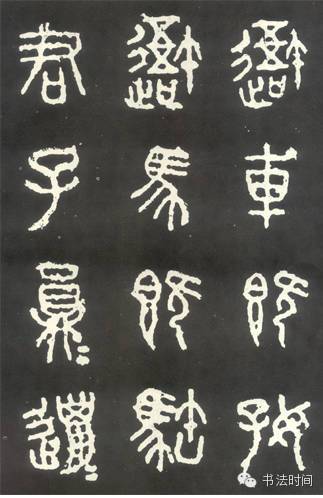 吾車既好
吾馬既
君子員＝邋＝
书法时间